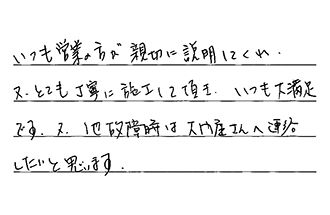 いつも営業の方が親切に説明してくれ.
又.とても丁寧に施工して頂き.いつも大満足
です.又.他故障時は大内屋さんへ連絡
したいと思います.